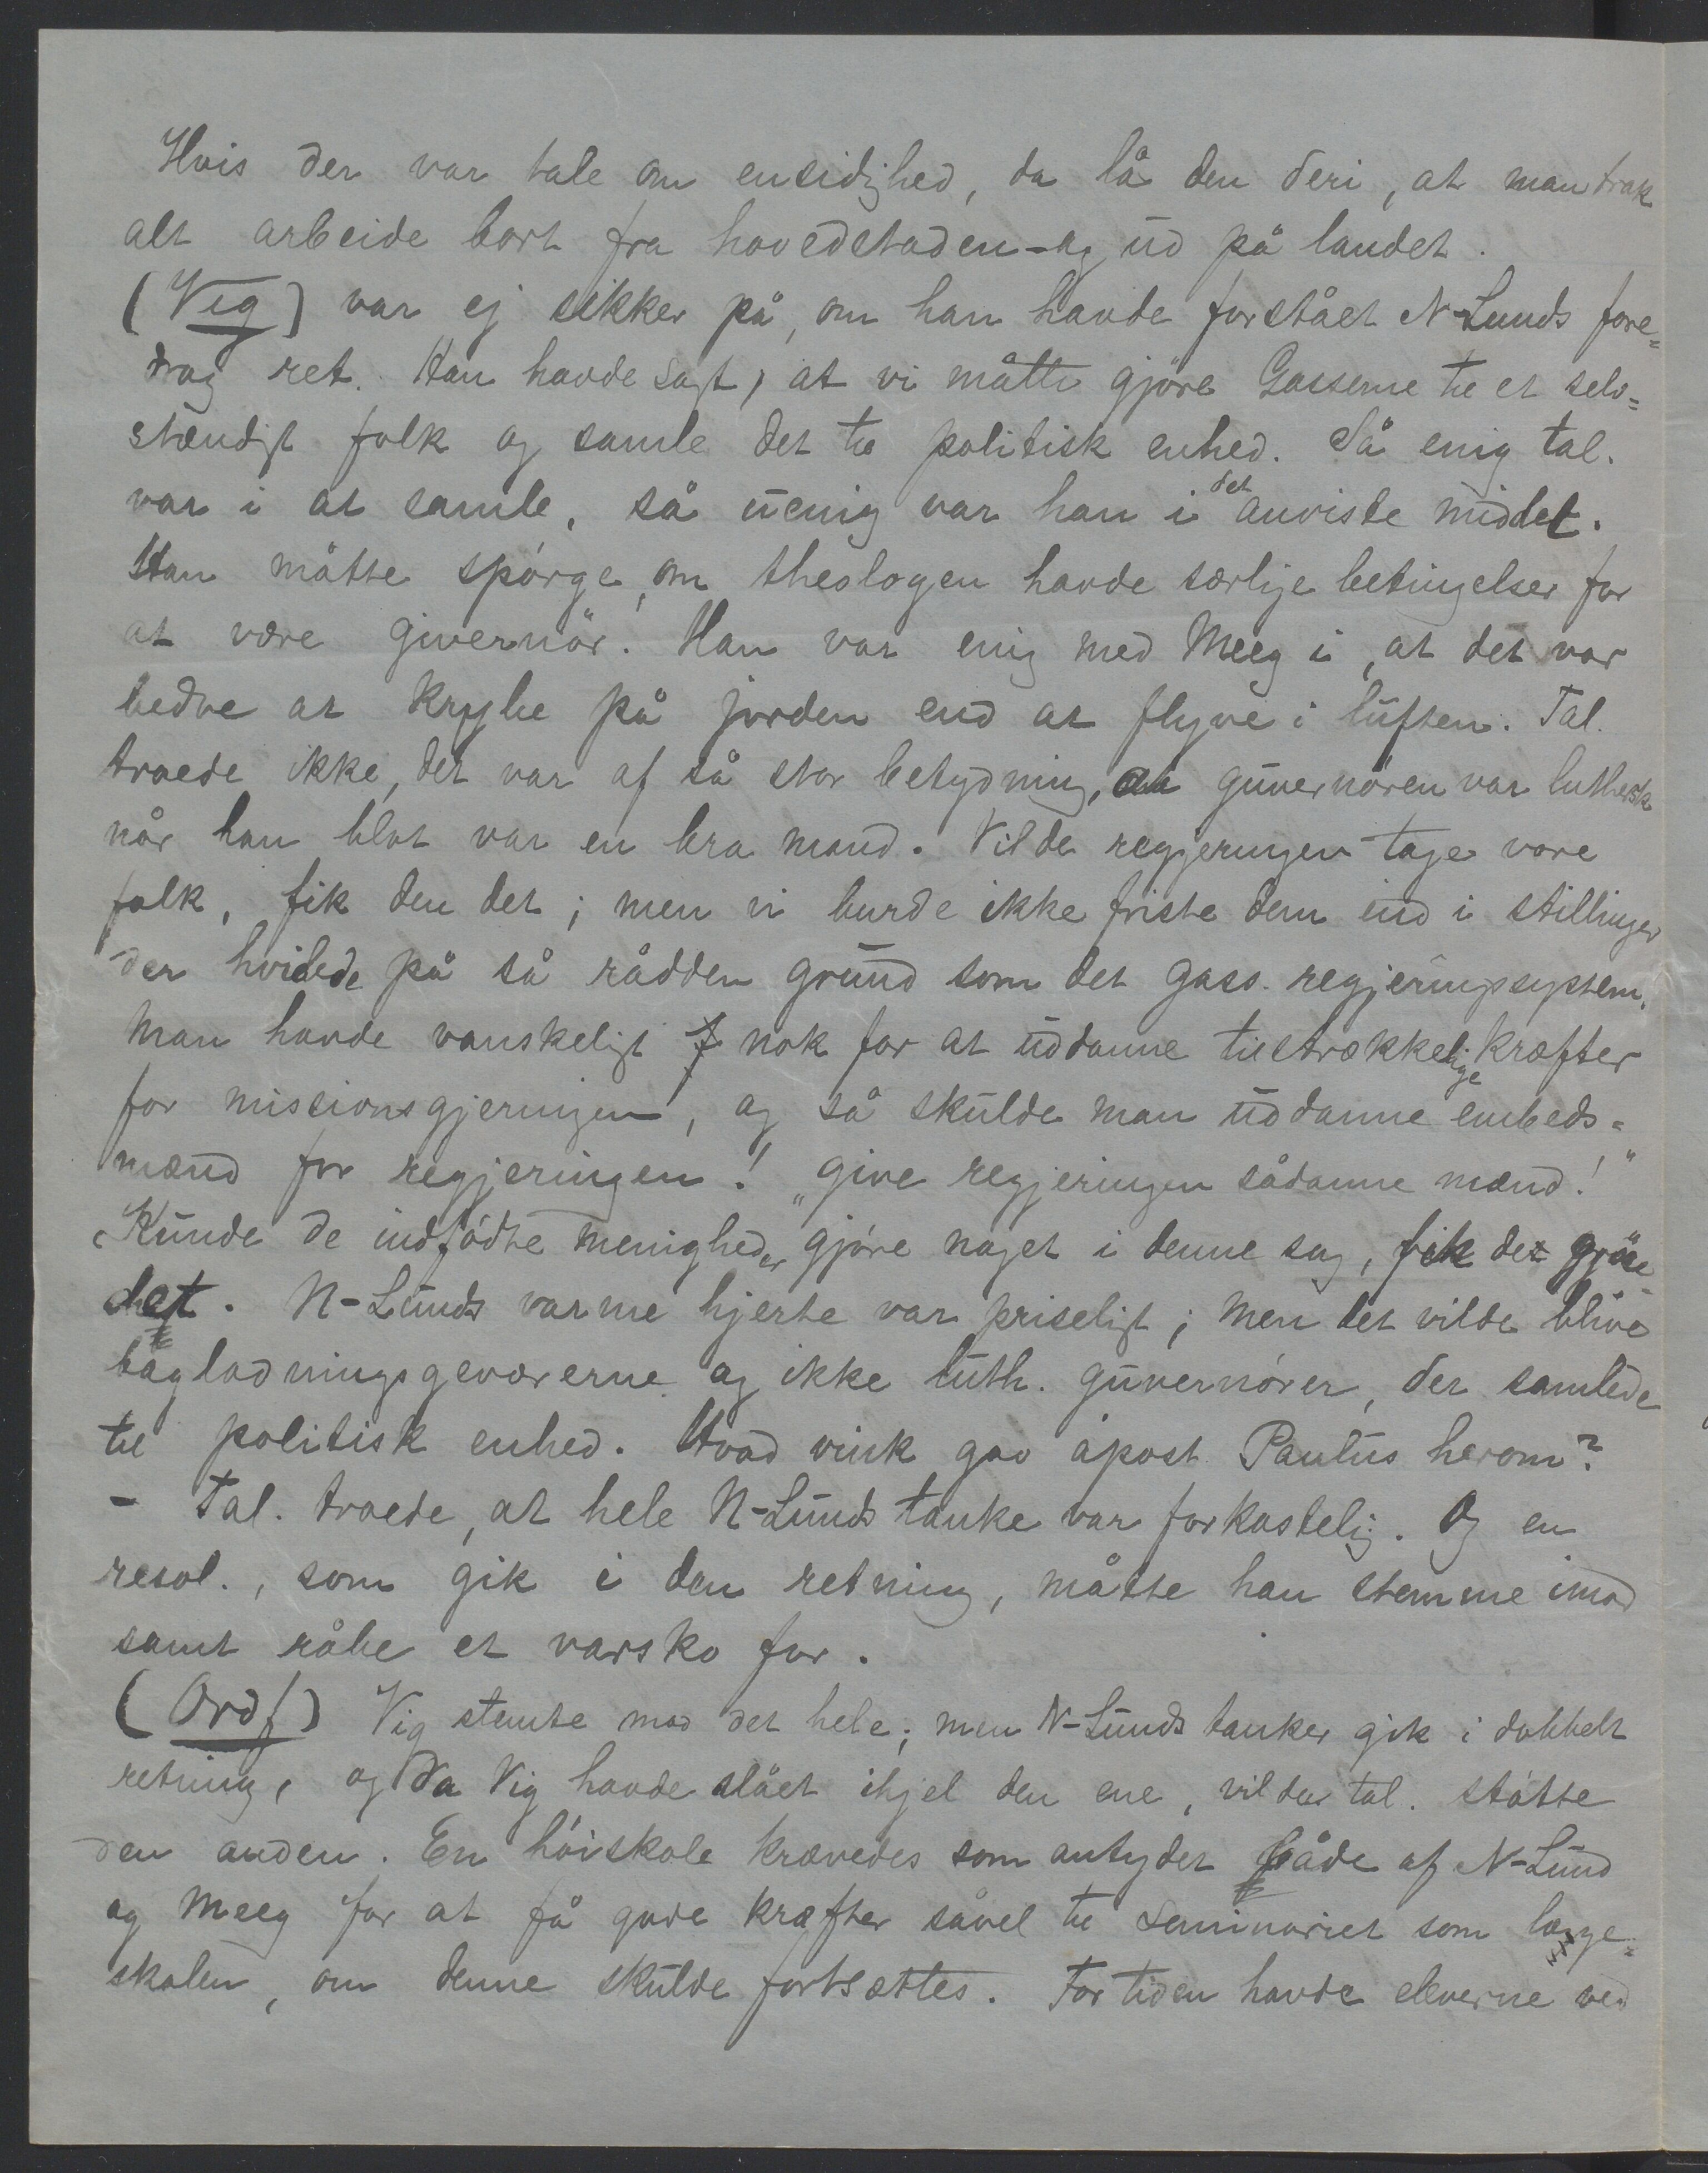 Hvis der var tale om ensidighed, da lå den deri, at man trak
alt arbeide bort fra hovedstaden - og ud på landet.
(Vig) var ej sikker på, om han havde forstået N-Lunds fore=
drag ret. Han havde sagt, at vi måtte gjöre Gasserne til et selv=
stændigt folk og samle det til politisk enhed. Så enig tal.
var i at samle, så uenig var han i det anviste middel.
Han måtte spörge, om theologen havde særlige betingelser for
at være guvernör. Han var enig med Meeg i, at det var
bedre at krybe på jorden end at flyve i luften. Tal.
troede ikke, det var af så stor betydning, at guvernören var luthersk
når han blot var en bra mand. Vilde regjeringen tage vore
folk, fik den det; men vi burde ikke friste dem ind i stillinger
der hvilede på så rådden grund som det gass. regjeringssystem.
Man havde vanskeligt nok for at uddanne tilstrækkelige kræfter
for missionsgjerningen, og så skulde man uddanne embeds=
mænd for regjeringen! "give regjeringen sådanne mænd!"
Kunde de indfödte menigheder gjöre noget i denne sag, fik de gjöre
det. N-Lunds varme hjerte var priseligt; men det vilde blive
bagladningsgeværerne og ikke luth. guvernörer, der samlede
til politisk enhed. Hvad vink gav apost. Paulus herom?
- Tal. troede, at hele N-Lunds tanke var forkastelig. Og en
resol., som gik i den retning, måtte han stemme imod
samt råbe et varsko for.
(Ordf) Vig stemte mod det hele; men N-Lunds tanker gik i dobbelt
retning, og da Vig havde slået ihjel den ene, vilde tal. stötte
den anden. En höiskole krævedes som antydet både af N-Lund
og Meeg for at få gode kræfter såvel til Seminariet som læge=
skolen, om denne skulde fortsættes. For tiden havde eleverne ved